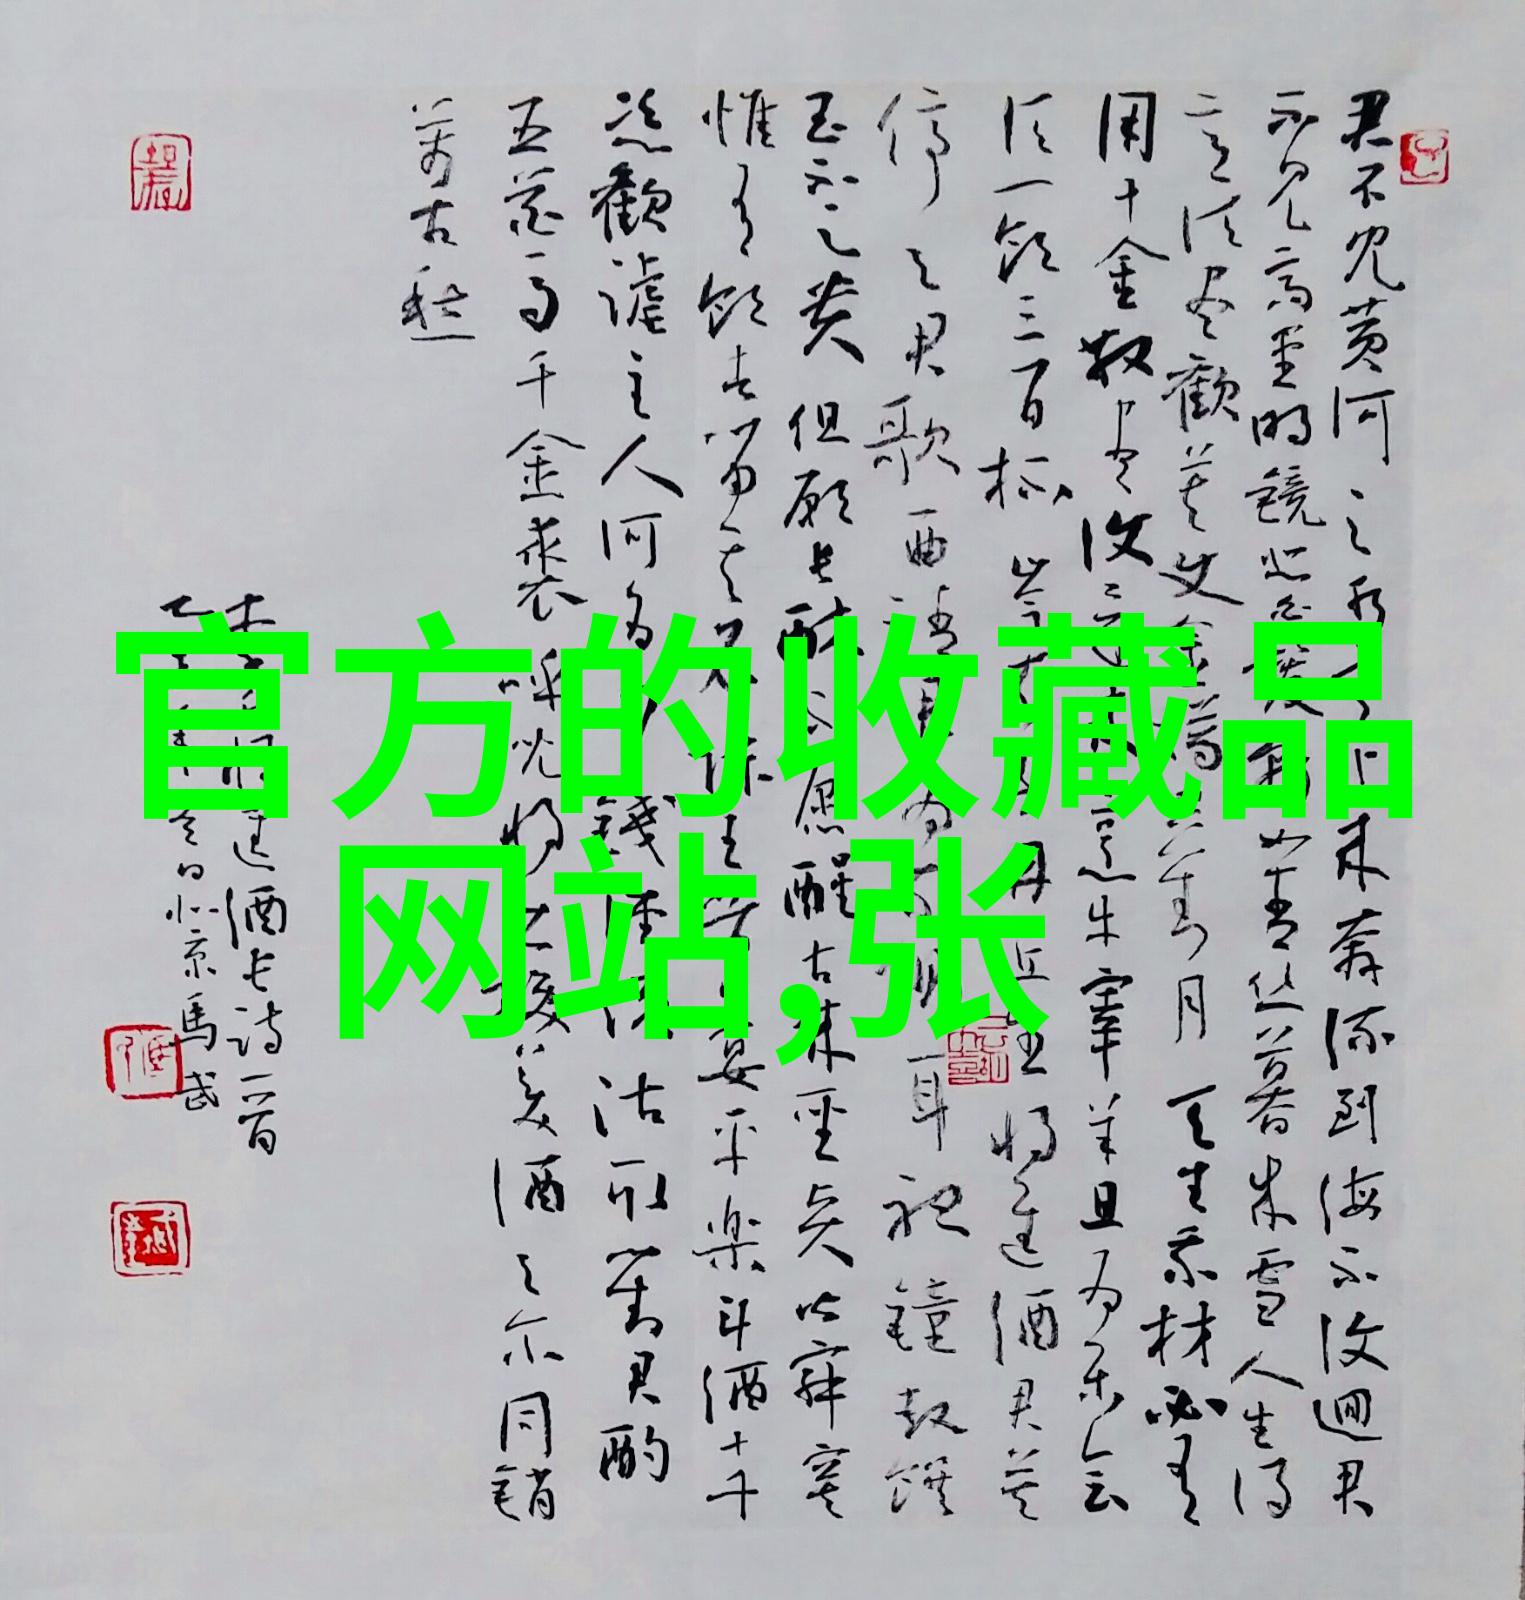 君不見黄河之水天上来奔流到海不復迴君
不見高堂明鏡悲白髮朝如青丝暮成雪人生得
意须尽歡莫使金樽空對月天生我材必有
用千金散尽復还来烹牛宰羊且为乐会
须一飲三百杯岑夫子丹丘生将進酒君莫
停与君歌一曲请君为我倾耳聴鐘鼓饌
玉不足贵但願长醉不愿醒古来聖贤皆寂寞
惟有飲者留其名陈王昔时宴平樂斗酒十千
恣歡謔主人何为言少錢径须沽取對君酌
五花马千金裘呼児将出换美酒与尔同銷
萬古愁
李白将進酒长诗一首
官方的收藏品
网站,张